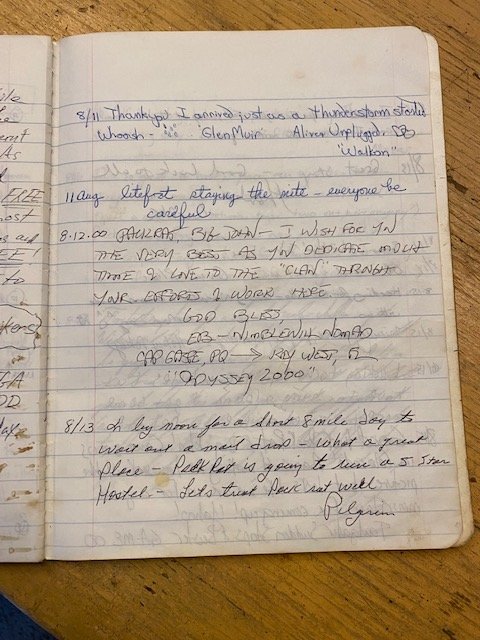 ile
FREE
most
EE!
to
GA
8/11 Thankyou! I arrived just as a thunderstorm started
Whoosh - "Glen Muir" Aliver Unplugged.
"Walkon"
11 Aug litefoot staying the nite - everyone be
careful
8.12.00 PAULRAT, BIG JOHN - I WISH FOR YOU
THE VERY BEST AS YOU DEDICATE MUCH
TIME & LOVE TO THE "CLAN" THROUGH
YOUR EFFORTS & WORK HERE.
GOD BLESS,
EB - NIMBLEWILL NOMAD
CAP GASPE, PQ -> KEY WEST, FL
"ODYSSEY 2000"
8/13 in by noon for a short 8 mile day to
wait out a mail drop - what a great
Place - PackRat is going to run a 5 Star
Hostel - Lets treat Pack rat well
Pilgrim